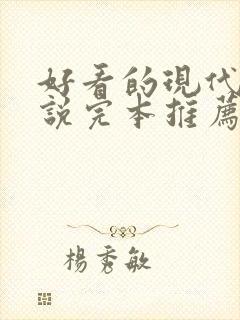 好看的現代
說完本推薦
楊秀敏